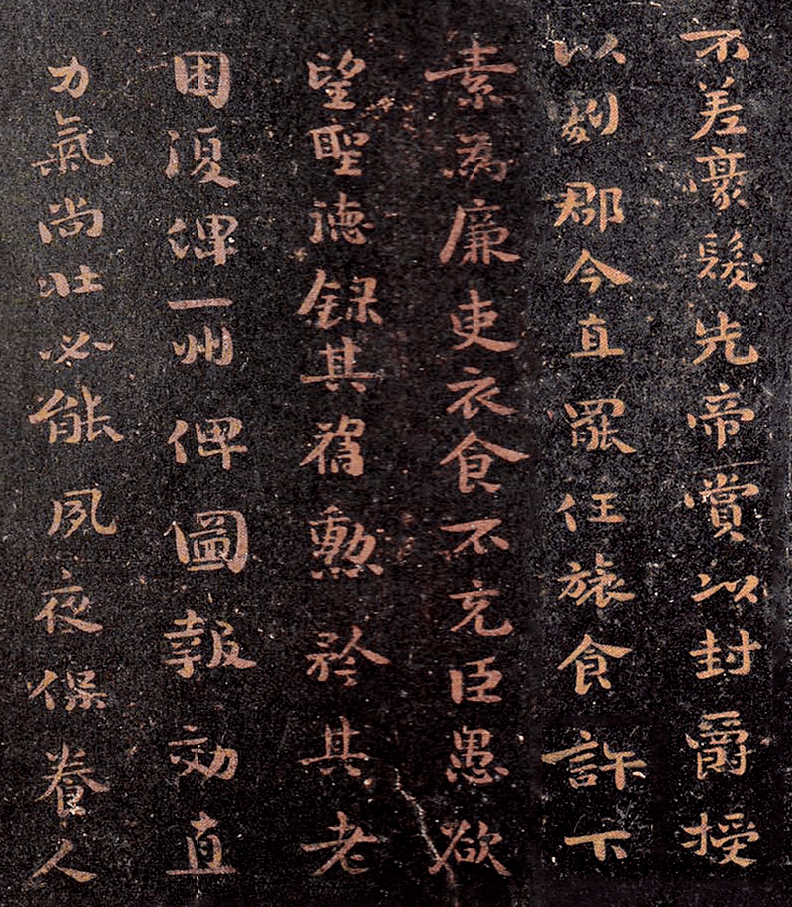 不差豪髮先帝賞以封爵授
以劇郡今直罷任旅食許下
素為廉吏衣食不充臣愚欲
望聖德錄其舊勳矜其老
困復俾一州俾圖報効直
力氣尚壯必能夙夜保養人